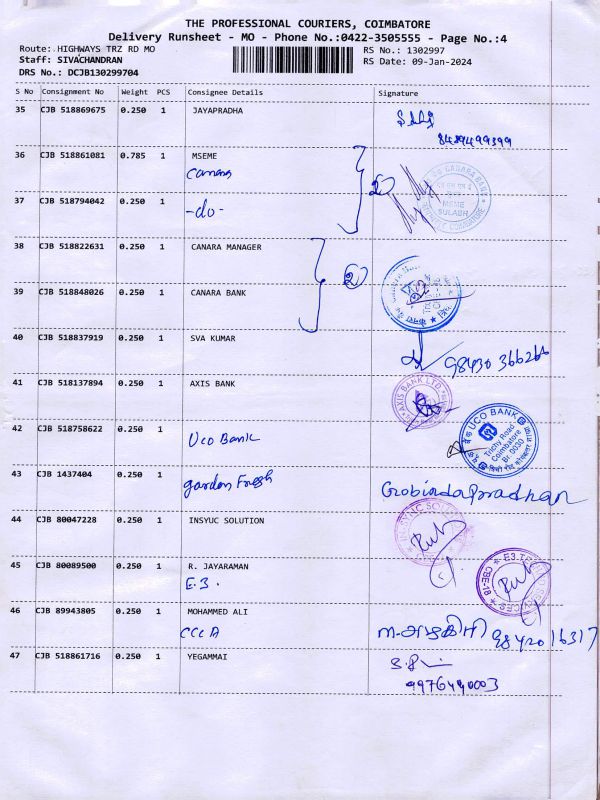 THE PROFESSIONAL COURIERS, COIMBATORE
Delivery Runsheet - MO - Phone No.:0422-3505555 - Page No.:4
Route: HIGHWAYS TRZ RD MO
RS No.: 1302997
Staff: SIVACHANDRAN
RS Date: 09-Jan-2024
DRS No.: DCJB130299704
S No Consignment No Weight PCS Consignee Details Signature
35 CJB 518869675 0.250 1 JAYAPRADHA
8489499399
36 CJB 518861081 0.785 1 MSEME
Canara
CANARA BANK
MSME
SULABH
COIMBATORE
37 CJB 518794042 0.250 1
-do-
2
38 CJB 518822631 0.250 1 CANARA MANAGER
2
39 CJB 518848026 0.250 1 CANARA BANK
40 CJB 518837919 0.250 1 SVA KUMAR
41 CJB 518137894 0.250 1 AXIS BANK
AXIS BANK LTD.
42 CJB 518758622 0.250 1
Uco Bank
UCO BANK
Trichy Road
Coimbatore
Br. 0030
43 CJB 1437404 0.250 1
garden Fresh
Gobinda Pradhan
44 CJB 80047228 0.250 1 INSYUC SOLUTION
45 CJB 80089500 0.250 1 R. JAYARAMAN
E.3.
CBE-18
46 CJB 89943805 0.250 1 MOHAMMED ALI
CCCA
9842016317
47 CJB 518861716 0.250 1 YEGAMMAI
9976490003